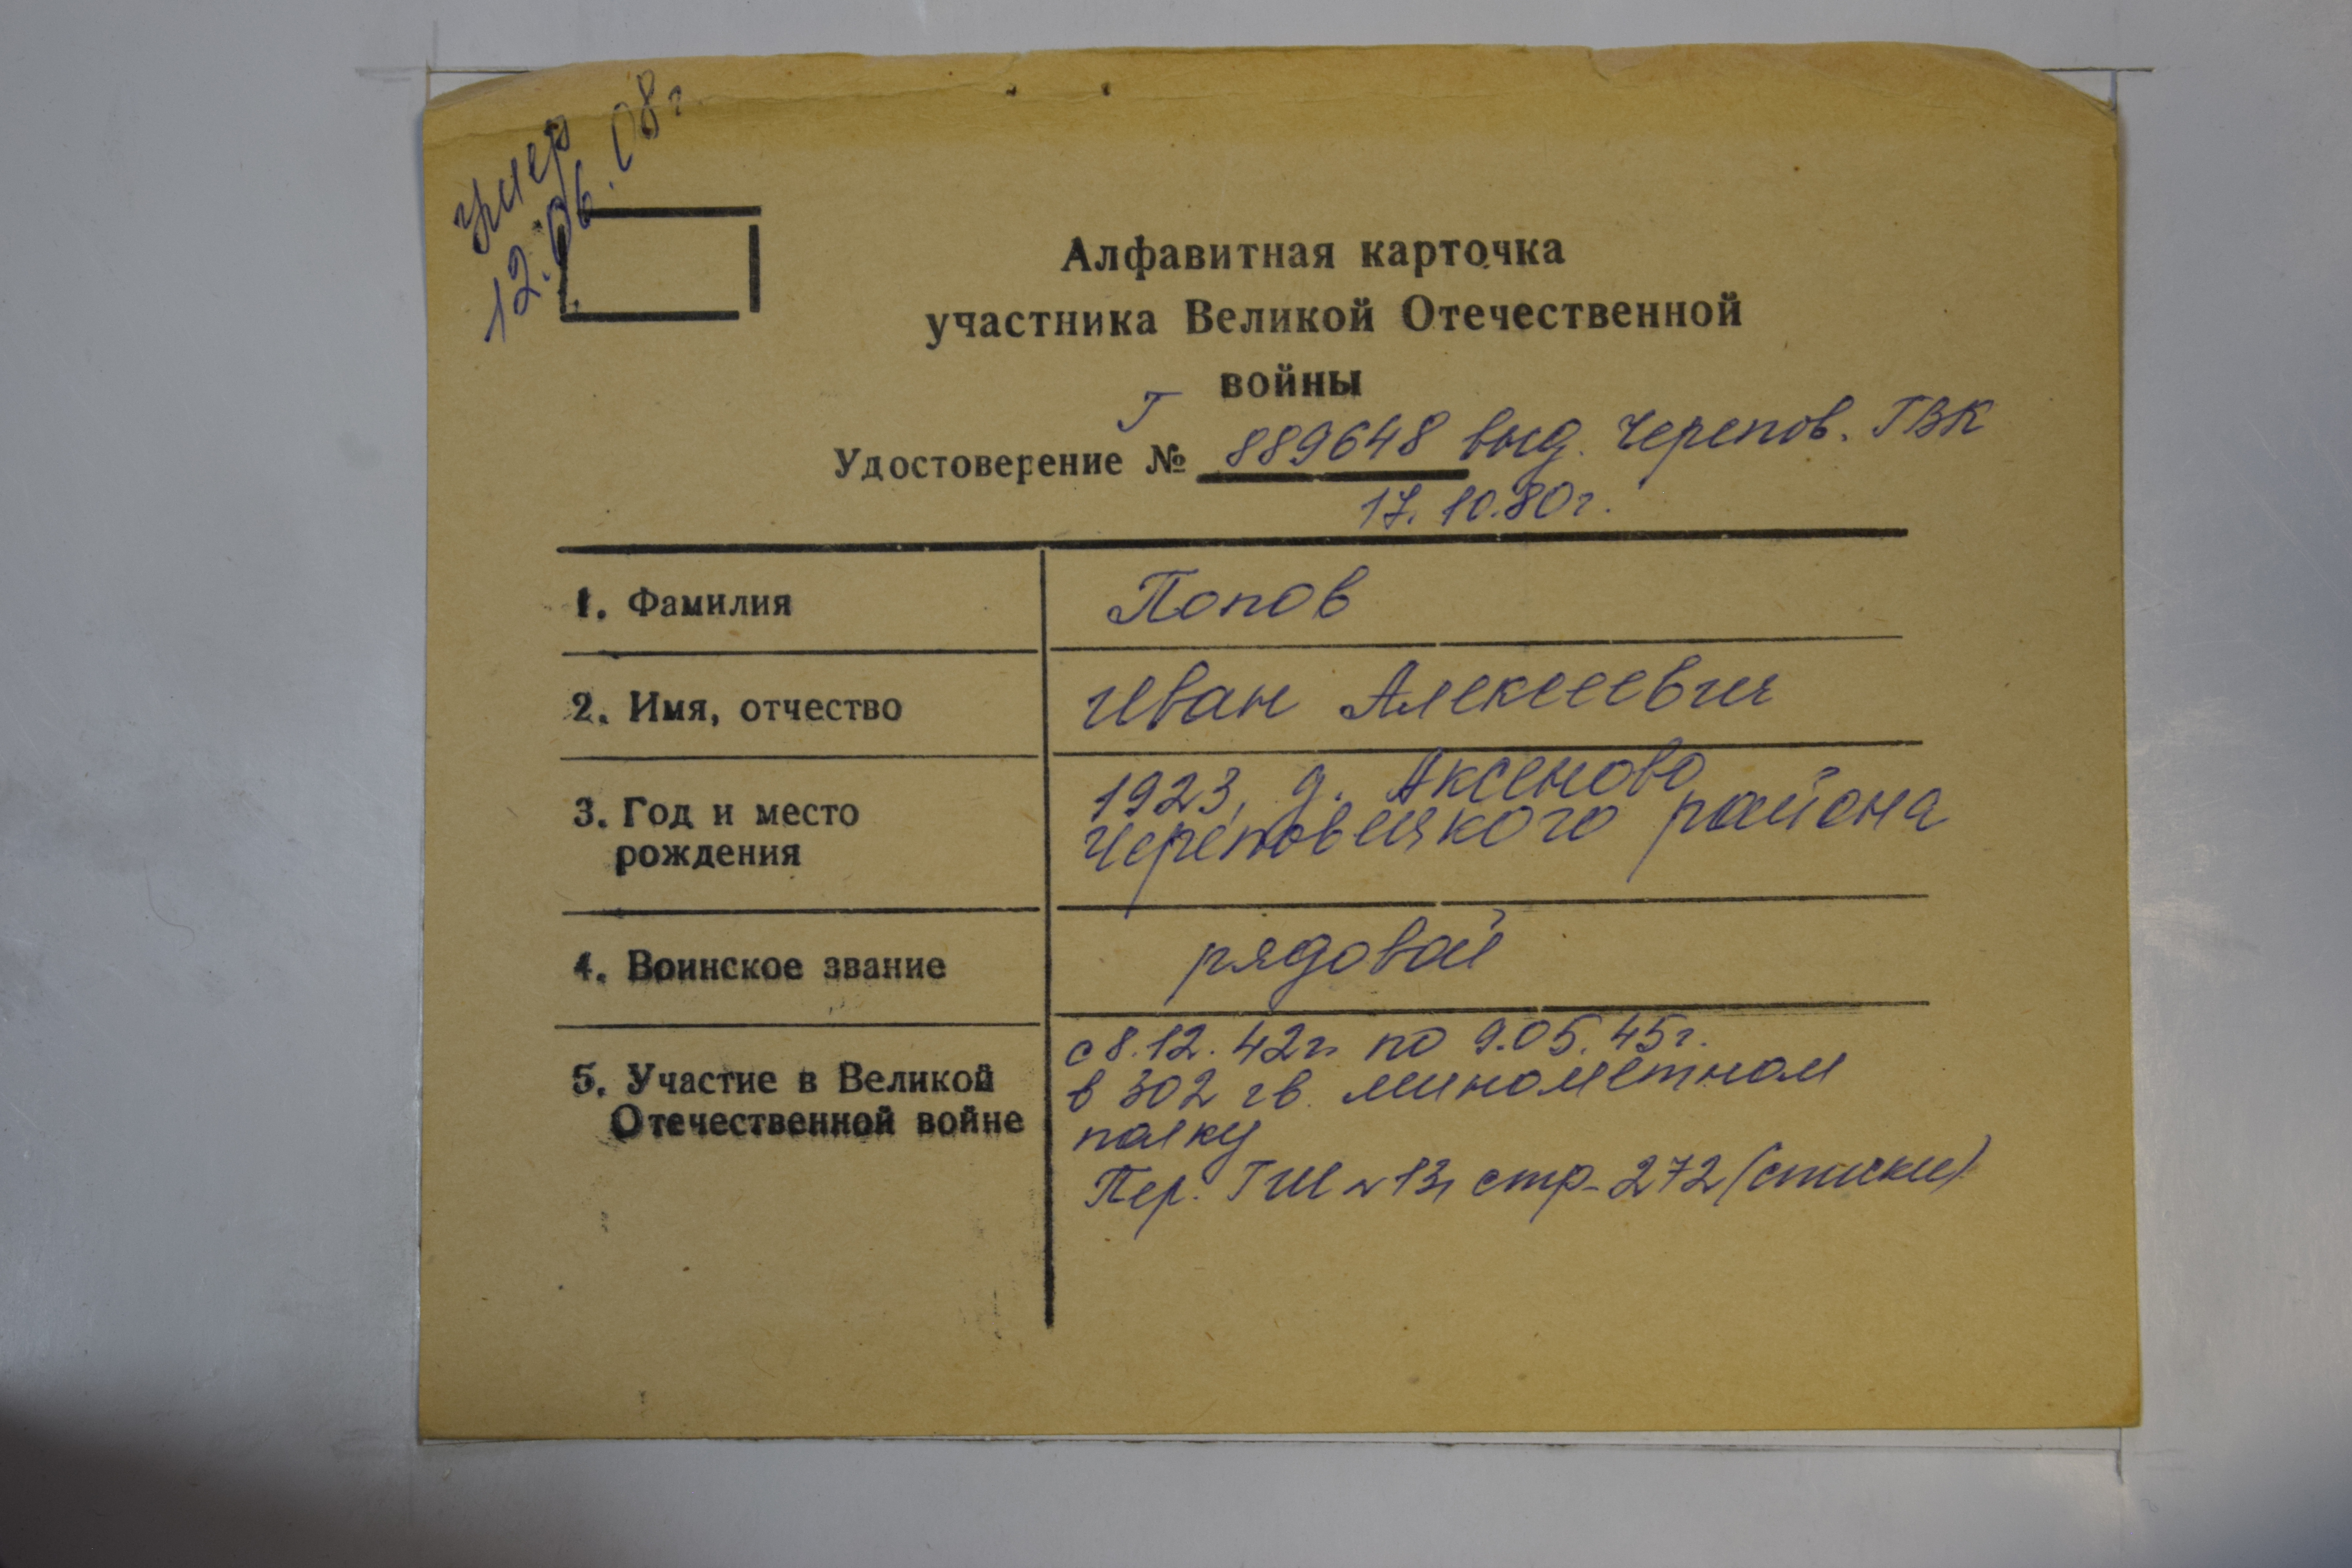 умер
12.06.08г
Алфавитная карточка
участника Великой Отечественной
войны
Удостоверение № Г 889648 выд. Черепов. ГВК
17.10.80г.
1. Фамилия
Попов
2. Имя, отчество
Иван Алексеевич
3. Год и место
рождения
1923, д. Аксеново
Череповецкого района
4. Воинское звание
рядовой
5. Участие в Великой
Отечественной войне
с 8.12.42г. по 9.05.45г.
в 302 гв. минометном
полку
Пер. ГШ №13, стр-272 (списки)